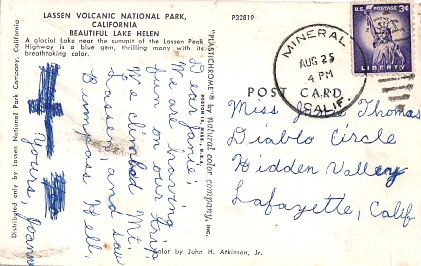 LASSEN VOLCANIC NATIONAL PARK,
CALIFORNIA
BEAUTIFUL LAKE HELEN
A glacial Lake near the summit of the Lassen Peak
Highway is a blue gem, thrilling many with its
breathtaking color.
P32819
Distributed only by Lassen National Park Company, Mineral, California
Dear Janie,
We are having
fun on our trip
We climbed Mt.
Lassen, and saw
Bumpass Hell.
Yours,
"PLASTICHROME"® by natural color company, INC.
Color by John H. Atkinson, Jr.
MINERAL
AUG 25
4 PM
CALIF.
U.S. POSTAGE
3¢
LIBERTY
POST CARD
Miss Janie Thomas
Diablo Circle
Hidden Valley
Lafayette, Calif.